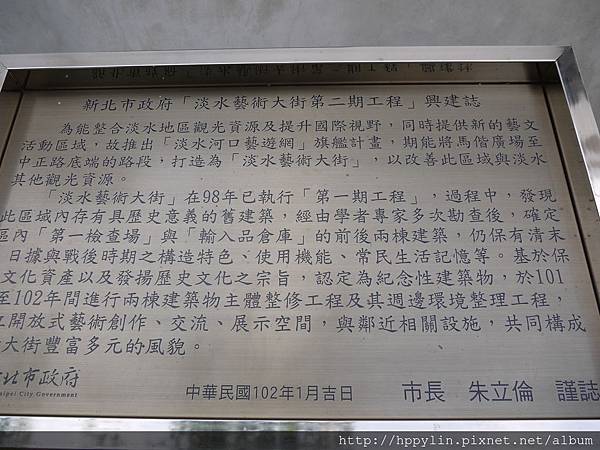 新北市政府「淡水藝術大街第二期工程」興建誌
為能整合淡水地區觀光資源及提升國際視野,同時提供新的藝文
活動區域,故推出「淡水河口藝遊網」旗艦計畫,期能將馬偕廣場至
中正路底端的路段,打造為「淡水藝術大街」,以改善此區域與淡水
其他觀光資源。
「淡水藝術大街」在98年已執行「第一期工程」,過程中,發現
此區域內存有具歷史意義的舊建築,經由學者專家多次勘查後,確定
區內「第一檢查場」與「輸入品倉庫」的前後兩棟建築,仍保有清末
日據與戰後時期之構造特色、使用機能、常民生活記憶等。基於保
文化資產以及發揚歷史文化之宗旨,認定為紀念性建築物,於101
至102年間進行兩棟建築物主體整修工程及其週邊環境整理工程,
開放式藝術創作、交流、展示空間,與鄰近相關設施,共同構成
大街豐富多元的風貌。
北市政府
aipei City Government
中華民國102年1月吉日 市長 朱立倫 謹誌
http://hppylin.pixnet.net/album